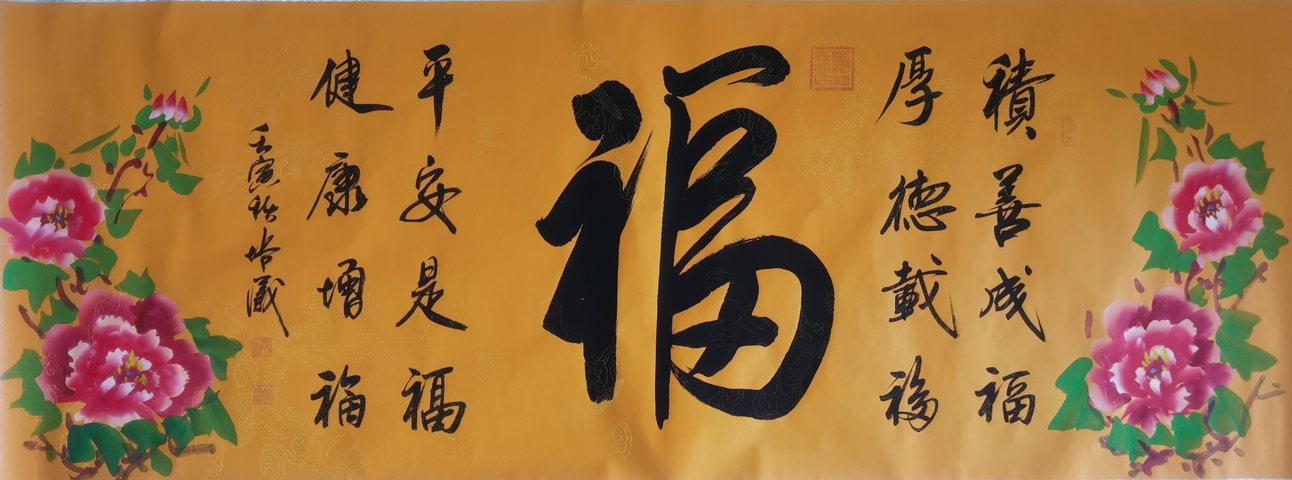 積善成福
厚德載福
福
平安是福
健康增福
壬寅秋